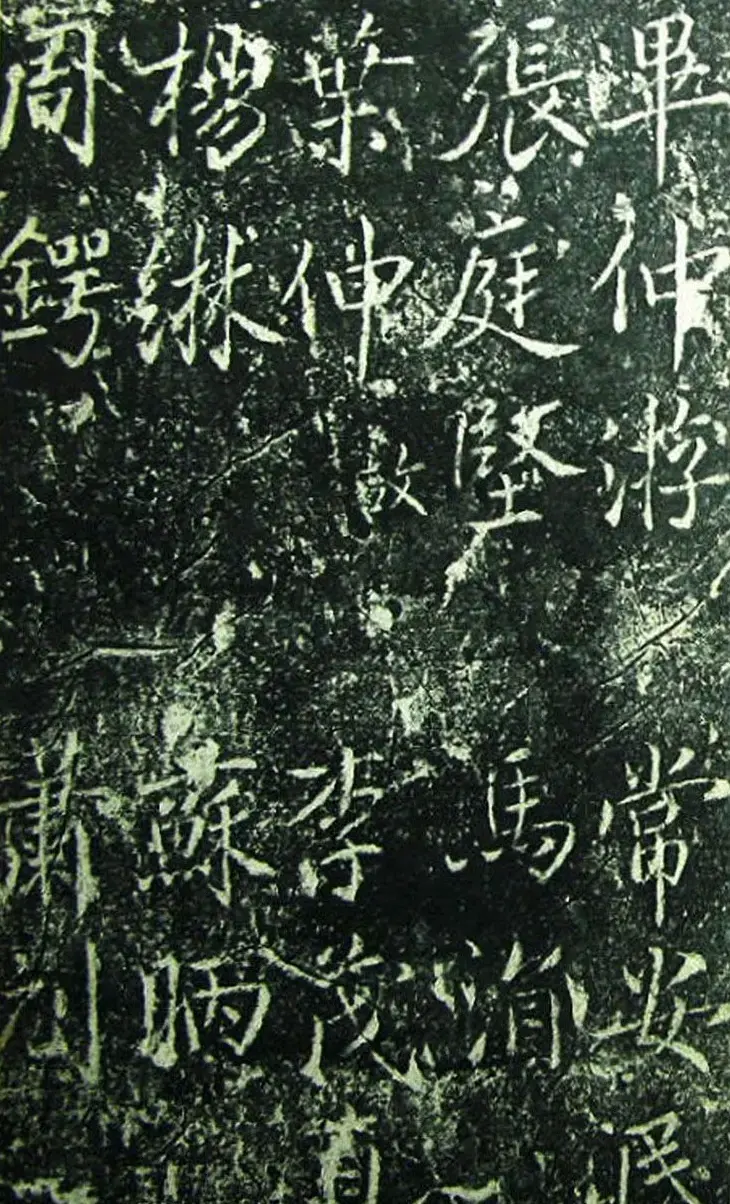 畢仲游
張庭堅
葉伸 故
楊綝
周鍔
常安民
馬涓
李茂直
蘇昞
蕭刓